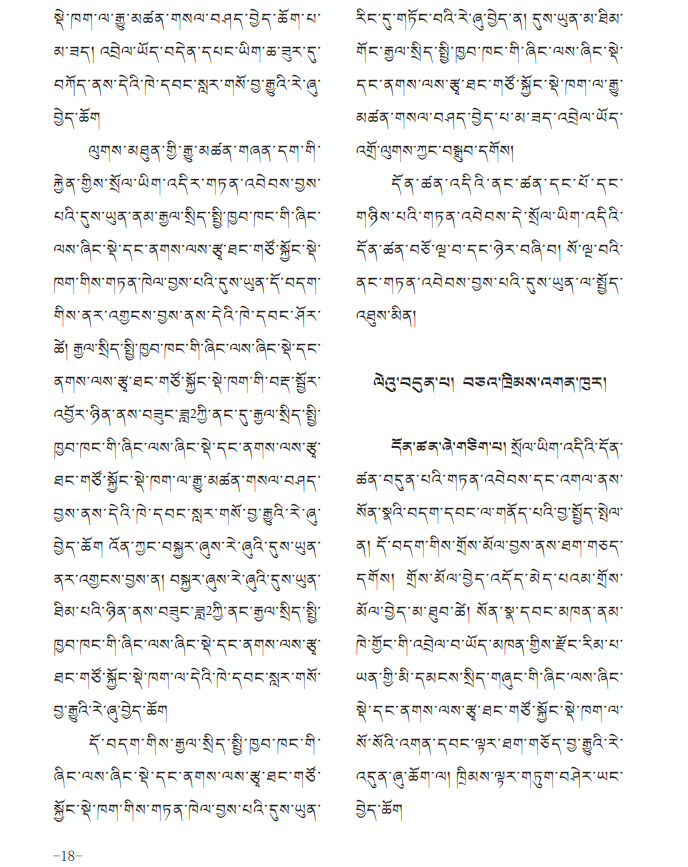 སྡེ་ཁག་ལ་རྒྱུ་མཚན་གསལ་བཤད་བྱེད་ཆོག་པ་
མ་ཟད། འབྲེལ་ཡོད་བདེན་དཔང་ཡིག་ཆ་ཟུར་དུ་
བཀོད་ནས་དེའི་ཁེ་དབང་སླར་གསོ་བྱ་རྒྱུའི་རེ་ཞུ་
བྱེད་ཆོག
ལུགས་མཐུན་གྱི་རྒྱུ་མཚན་གཞན་དག་གི་
རྐྱེན་གྱིས་སྲོལ་ཡིག་འདིར་གཏན་འབེབས་བྱས་
པའི་དུས་ཡུན་ནམ་རྒྱལ་སྲིད་སྤྱི་ཁྱབ་ཁང་གི་ཞིང་
ལས་ཞིང་སྡེ་དང་ནགས་ལས་རྩྭ་ཐང་གཙོ་སྐྱོང་སྡེ་
ཁག་གིས་གཏན་ཁེལ་བྱས་པའི་དུས་ཡུན་དོ་བདག་
གིས་ནར་འགྱངས་བྱས་ནས་དེའི་ཁེ་དབང་ཤོར་
ཚེ། རྒྱལ་སྲིད་སྤྱི་ཁྱབ་ཁང་གི་ཞིང་ལས་ཞིང་སྡེ་དང་
ནགས་ལས་རྩྭ་ཐང་གཙོ་སྐྱོང་སྡེ་ཁག་གི་བརྡ་སྦྱོར་
འབྱོར་ཉིན་ནས་བཟུང་ཟླ2ཀྱི་ནང་དུ་རྒྱལ་སྲིད་སྤྱི་
ཁྱབ་ཁང་གི་ཞིང་ལས་ཞིང་སྡེ་དང་ནགས་ལས་རྩྭ་
ཐང་གཙོ་སྐྱོང་སྡེ་ཁག་ལ་རྒྱུ་མཚན་གསལ་བཤད་
བྱས་ནས་དེའི་ཁེ་དབང་སླར་གསོ་བྱ་རྒྱུའི་རེ་ཞུ་
བྱེད་ཆོག འོན་ཀྱང་བསྐྱར་ཞུས་རེ་ཞུའི་དུས་ཡུན་
ནར་འགྱངས་བྱས་ན། བསྐྱར་ཞུས་རེ་ཞུའི་དུས་ཡུན་
ཐིམ་པའི་ཉིན་ནས་བཟུང་ཟླ2ཀྱི་ནང་རྒྱལ་སྲིད་སྤྱི་
ཁྱབ་ཁང་གི་ཞིང་ལས་ཞིང་སྡེ་དང་ནགས་ལས་རྩྭ་
ཐང་གཙོ་སྐྱོང་སྡེ་ཁག་ལ་དེའི་ཁེ་དབང་སླར་གསོ་
བྱ་རྒྱུའི་རེ་ཞུ་བྱེད་ཆོག
དོ་བདག་གིས་རྒྱལ་སྲིད་སྤྱི་ཁྱབ་ཁང་གི་
ཞིང་ལས་ཞིང་སྡེ་དང་ནགས་ལས་རྩྭ་ཐང་གཙོ་
སྐྱོང་སྡེ་ཁག་གིས་གཏན་ཁེལ་བྱས་པའི་དུས་ཡུན་
རིང་དུ་གཏོང་བའི་རེ་ཞུ་བྱེད་ན། དུས་ཡུན་མ་ཐིམ་
གོང་རྒྱལ་སྲིད་སྤྱི་ཁྱབ་ཁང་གི་ཞིང་ལས་ཞིང་སྡེ་
དང་ནགས་ལས་རྩྭ་ཐང་གཙོ་སྐྱོང་སྡེ་ཁག་ལ་རྒྱུ་
མཚན་གསལ་བཤད་བྱེད་པ་མ་ཟད་འབྲེལ་ཡོད་
འགྲོ་ལུགས་ཀྱང་བསྒྲུབ་དགོས།
དོན་ཚན་འདིའི་ནང་ཚན་དང་པོ་དང་
གཉིས་པའི་གཏན་འབེབས་དེ་སྲོལ་ཡིག་འདིའི་
དོན་ཚན་བཅོ་ལྔ་བ་དང་ཉེར་བཞི་བ། སོ་ལྔ་བའི་
ནང་གཏན་འབེབས་བྱས་པའི་དུས་ཡུན་ལ་སྤྱོད་
འཐུས་མིན།
ལེའུ་བདུན་པ། བཅའ་ཁྲིམས་འགན་ཁུར།
དོན་ཚན་ཞེ་གཅིག་པ། སྲོལ་ཡིག་འདིའི་དོན་
ཚན་བདུན་པའི་གཏན་འབེབས་དང་འགལ་ནས་
སོན་སྣའི་བདག་དབང་ལ་གནོད་པའི་བྱ་སྤྱོད་སྤེལ་
ན། དོ་བདག་གིས་གྲོས་མོལ་བྱས་ནས་ཐག་གཅད་
དགོས། གྲོས་མོལ་བྱེད་འདོད་མེད་པའམ་གྲོས་
མོལ་བྱེད་མ་ཐུབ་ཚེ། སོན་སྣ་དབང་མཁན་ནམ་
ཁེ་གྱོང་གི་འབྲེལ་བ་ཡོད་མཁན་གྱིས་རྫོང་རིམ་པ་
ཡན་གྱི་མི་དམངས་སྲིད་གཞུང་གི་ཞིང་ལས་ཞིང་
སྡེ་དང་ནགས་ལས་རྩྭ་ཐང་གཙོ་སྐྱོང་སྡེ་ཁག་ལ་
སོ་སོའི་འགན་དབང་ལྟར་ཐག་གཅོད་བྱ་རྒྱུའི་རེ་
འདུན་ཞུ་ཆོག་ལ། ཁྲིམས་ལྟར་གཏུག་བཤེར་ཡང་
བྱེད་ཆོག
-18-